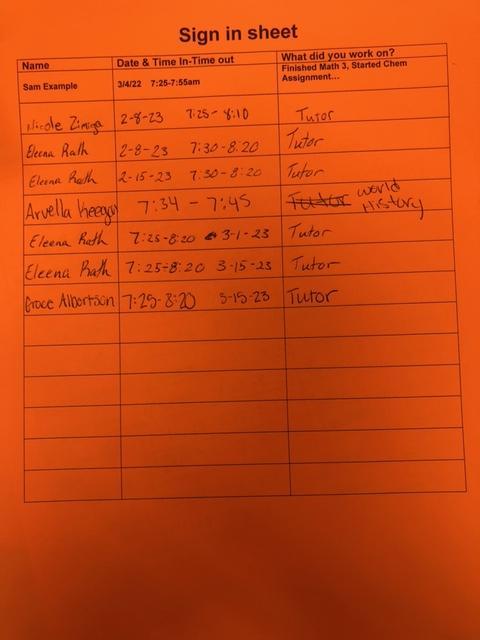 Sign in sheet
Name Date & Time In-Time out What did you work on?
Sam Example 3/4/22 7:25-7:55am Finished Math 3, Started Chem Assignment...
Nicole 2-8-23 7:25-8:10 Tutor
Eleena Rath 2-8-23 7:30-8:20 Tutor
Eleena Rath 2-15-23 7:30-8:20 Tutor
Arvella Keegan 7:34 - 7:45 Tutor World History
Eleena Rath 7:25-8:20 3-1-23 Tutor
Eleena Rath 7:25-8:20 3-15-23 Tutor
Grace Albertson 7:25-8:20 3-15-23 Tutor